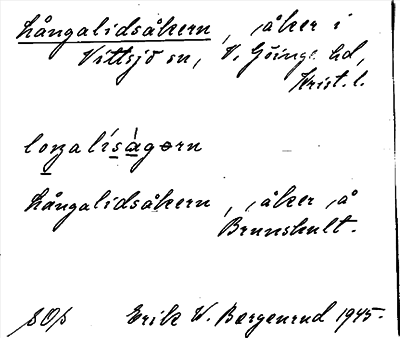 Långalidsåkern, åker i
Vittsjö sn, V. Göinge hd,
Krist. l.
loŋalísàgɘrn
Långalidsåkern, åker å
Brunshult.
Erik W. Bergenrud 1945.